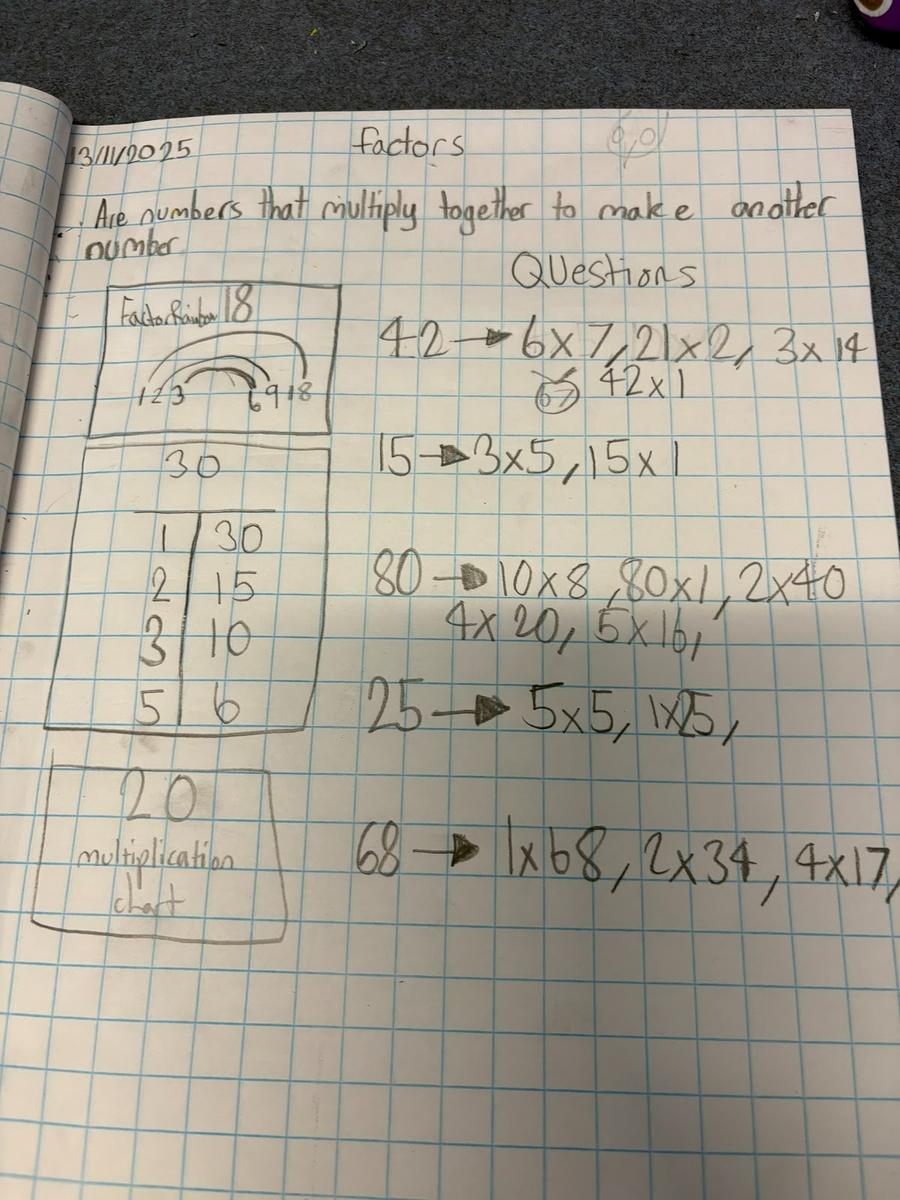 13/11/2025
factors
Are numbers that multiply together to make another
number
Factor Rainbow 18
1 2 3 6 9 18
30
1 30
2 15
3 10
5 6
20
multiplication
chart
Questions
42 → 6x7, 21x2, 3x14
67 42x1
15 → 3x5, 15x1
80 → 10x8, 80x1, 2x40
4x20, 5x16,
25 → 5x5, 1x25,
68 → 1x68, 2x34, 4x17,